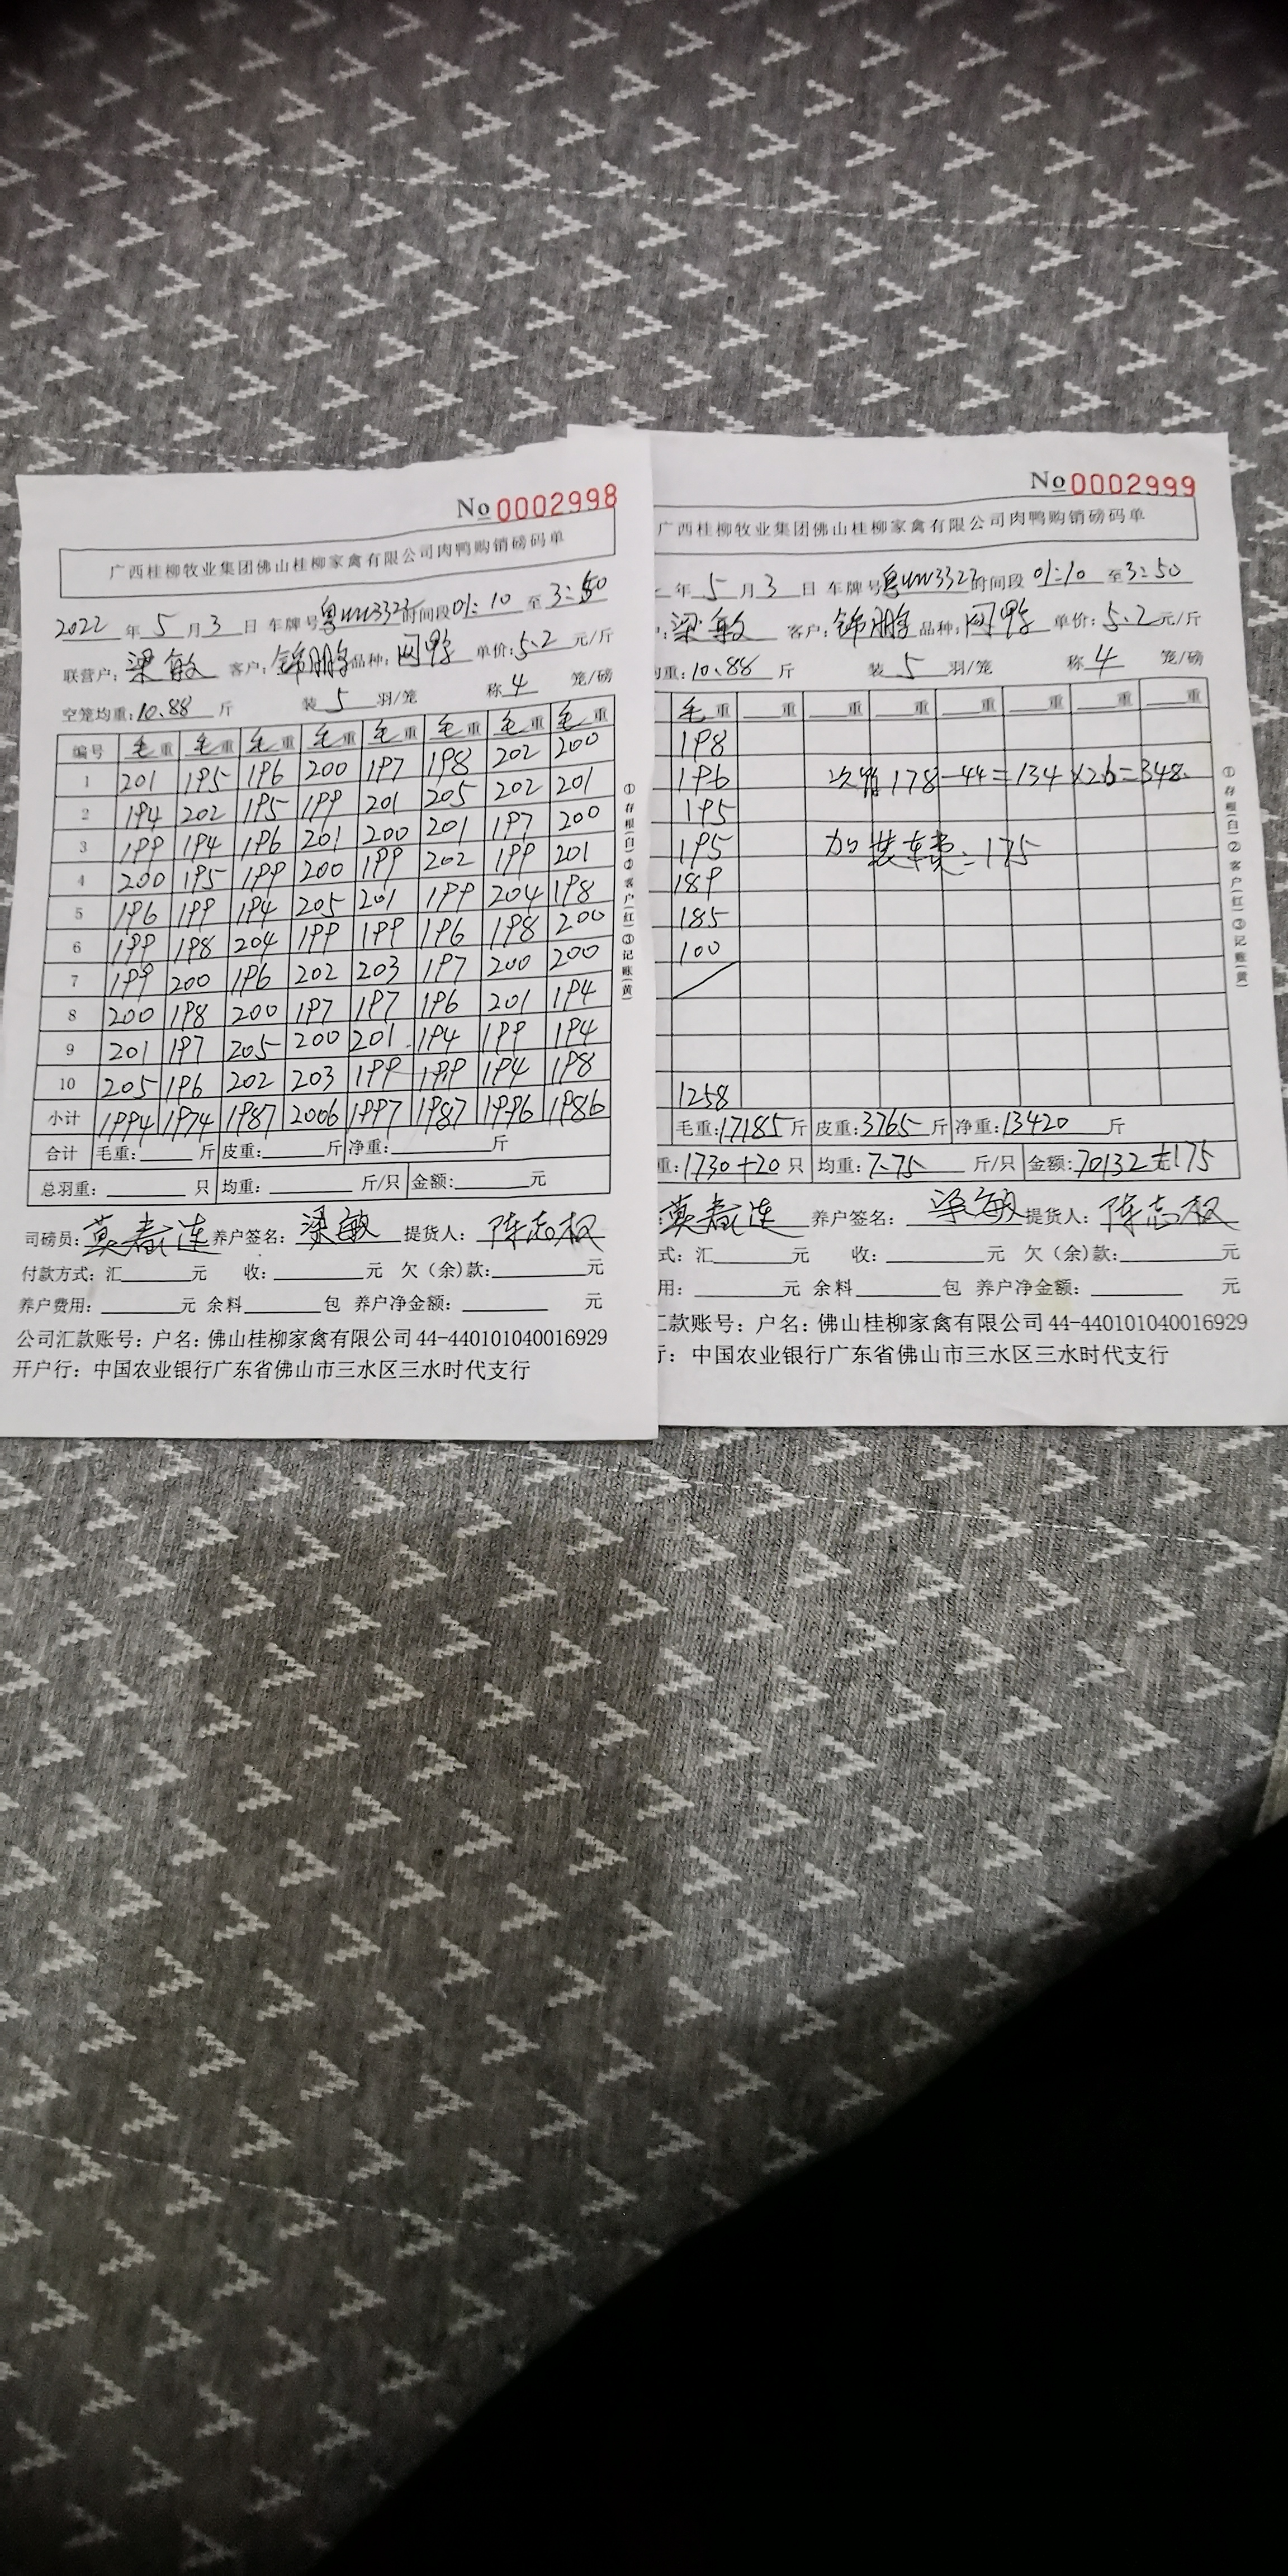 No 0002998
广西桂柳牧业集团佛山桂柳家禽有限公司肉鸭购销磅码单
2022 年 5 月 3 日 车牌号 粤 3323 时间段 01:10 至 3:50
联营户: 梁敏 客户: 锦鹏 品种: 单价: 5.2 元/斤
空笼均重: 10.88 斤 装 5 羽/笼 称 4 笼/磅
编号 毛重 毛重 毛重 毛重 毛重 毛重 毛重 毛重
1 201 195 196 200 197 198 202 200
2 194 202 195 199 201 205 202 201
3 199 194 196 201 200 201 197 200
4 200 195 199 200 199 202 199 201
5 196 199 194 205 201 199 204 198
6 199 198 204 199 199 196 198 200
7 199 200 196 202 203 197 200 200
8 200 198 200 197 197 196 201 194
9 201 197 205 200 201 194 199 194
10 205 196 202 203 199 199 194 198
小计 1994 1974 1987 2006 1997 1987 1996 1986
合计 毛重: 斤 皮重: 斤 净重: 斤
总羽重: 只 均重: 斤/只 金额: 元
司磅员: 莫春连 养户签名: 梁敏 提货人: 陈志权
付款方式: 汇 元 收: 元 欠（余）款: 元
养户费用: 元 余料 包 养户净金额: 元
公司汇款账号: 户名: 佛山桂柳家禽有限公司 44-440101040016929
开户行: 中国农业银行广东省佛山市三水区三水时代支行
①存根(白)②客户(红)③记账(黄)
No 0002999
广西桂柳牧业集团佛山桂柳家禽有限公司肉鸭购销磅码单
年 5 月 3 日 车牌号 粤 3323 时间段 01:10 至 3:50
: 梁敏 客户: 锦鹏 品种: 单价: 5.2 元/斤
均重: 10.88 斤 装 5 羽/笼 称 4 笼/磅
毛重 重 重 重 重 重 重 重
198
196 次 178-44=134×2.6=348.
195
195 加装车费: 175
189
185
100
1258
毛重: 17185 斤 皮重: 3765 斤 净重: 13420 斤
重: 1730+20 只 均重: 7.75 斤/只 金额: 70132 175
: 莫春连 养户签名: 梁敏 提货人: 陈志权
式: 汇 元 收: 元 欠（余）款: 元
用: 元 余料 包 养户净金额: 元
汇款账号: 户名: 佛山桂柳家禽有限公司 44-440101040016929
行: 中国农业银行广东省佛山市三水区三水时代支行
①存根(白)②客户(红)③记账(黄)